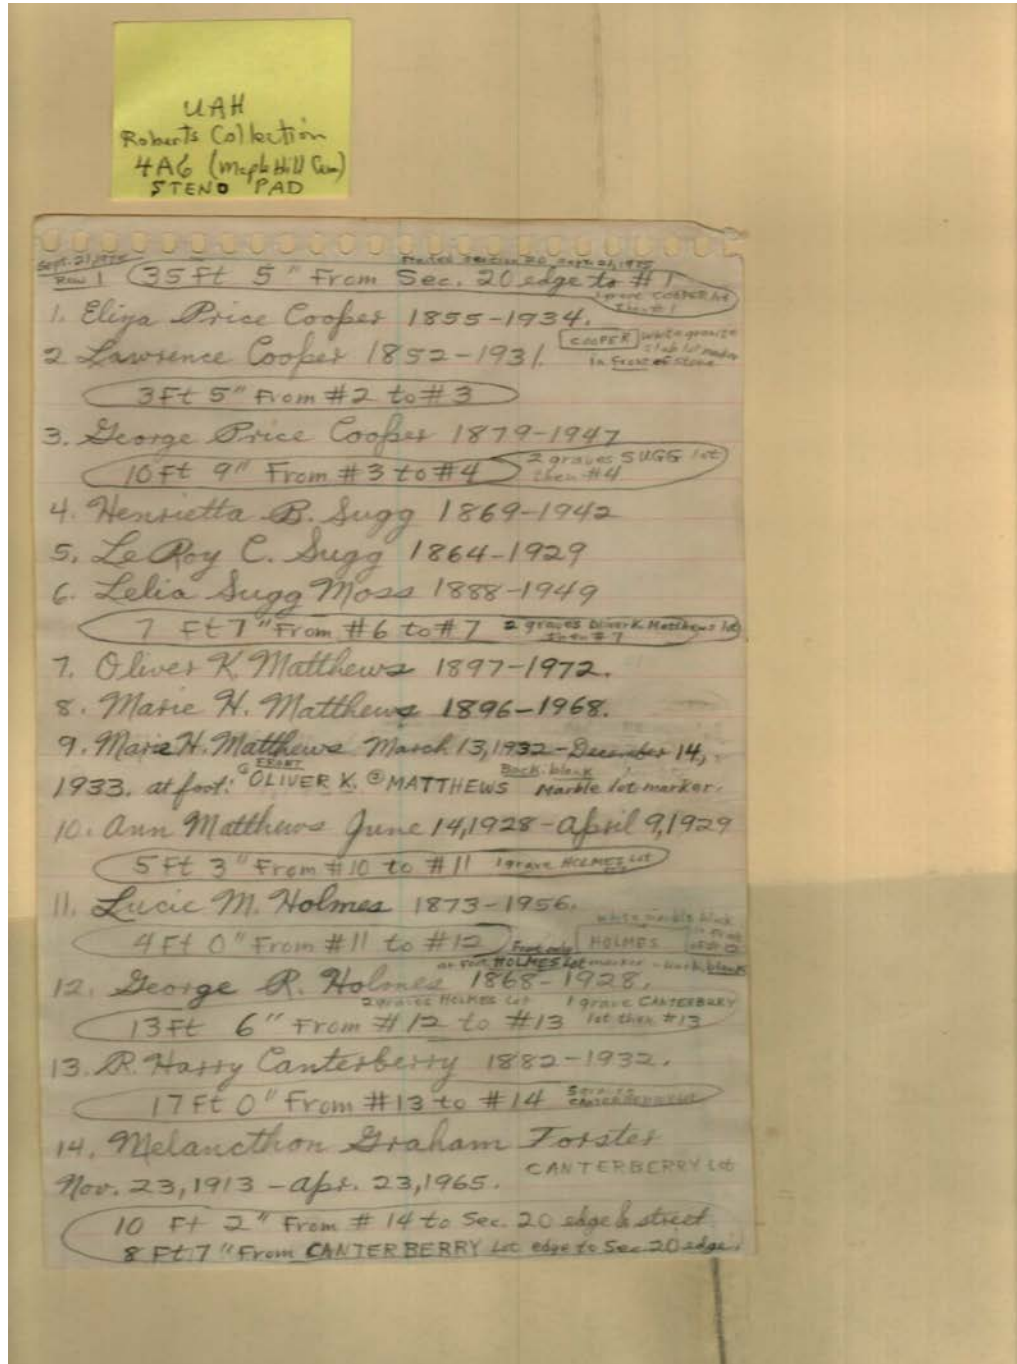 UAH
Roberts Collection
4A6 (Maple Hill Cem)
STENO PAD
Sept. 21, 1975
Started Section 20 Sept. 21, 1975
Row 1 35 Ft 5" From Sec. 20 edge to # 1
1 grave COOPER lot
then # 1
1. Eliza Price Cooper 1855-1934.
COOPER white granite
slab lot marker
in front of stone
2 Lawrence Cooper 1852-1931.
3 Ft 5" From #2 to #3
3. George Price Cooper 1879-1947
10 Ft 9" From #3 to #4 2 graves SUGG lot
then #4
4. Henrietta B. Sugg 1869-1942
5. LeRoy C. Sugg 1864-1929
6. Lelia Sugg Moss 1888-1949
7 Ft 7" From #6 to #7 2 graves Oliver K. Matthews lot
then # 7
7. Oliver K. Matthews 1897-1972.
8. Marie H. Matthews 1896-1968.
9. Marie H. Matthews March 13, 1932 - December 14,
FRONT Back-blank
1933. at foot: OLIVER K. MATTHEWS Marble lot marker.
10. Ann Matthews June 14, 1928 - April 9, 1929
5 Ft 3" From #10 to #11 1 grave HOLMES Lot
11. Lucie M. Holmes 1873-1956.
white marble block
in front
of # 12
4 Ft 0" From #11 to #12 Front only HOLMES
at foot HOLMES Lot marker - back blank
12. George R. Holmes 1868-1928.
2 graves HOLMES Lot 1 grave CANTERBERRY
13 Ft 6" From #12 to #13 lot then #13
13. R. Harry Canterberry 1882-1932.
17 Ft 0" From #13 to #14 5 graves
CANTERBERRY Lot
14. Melancthon Graham Forster
CANTERBERRY Lot
Nov. 23, 1913 - Apr. 23, 1965.
10 Ft 2" From # 14 to Sec. 20 edge & street
8 Ft 7" From CANTERBERRY Lot edge to Sec. 20 edge.